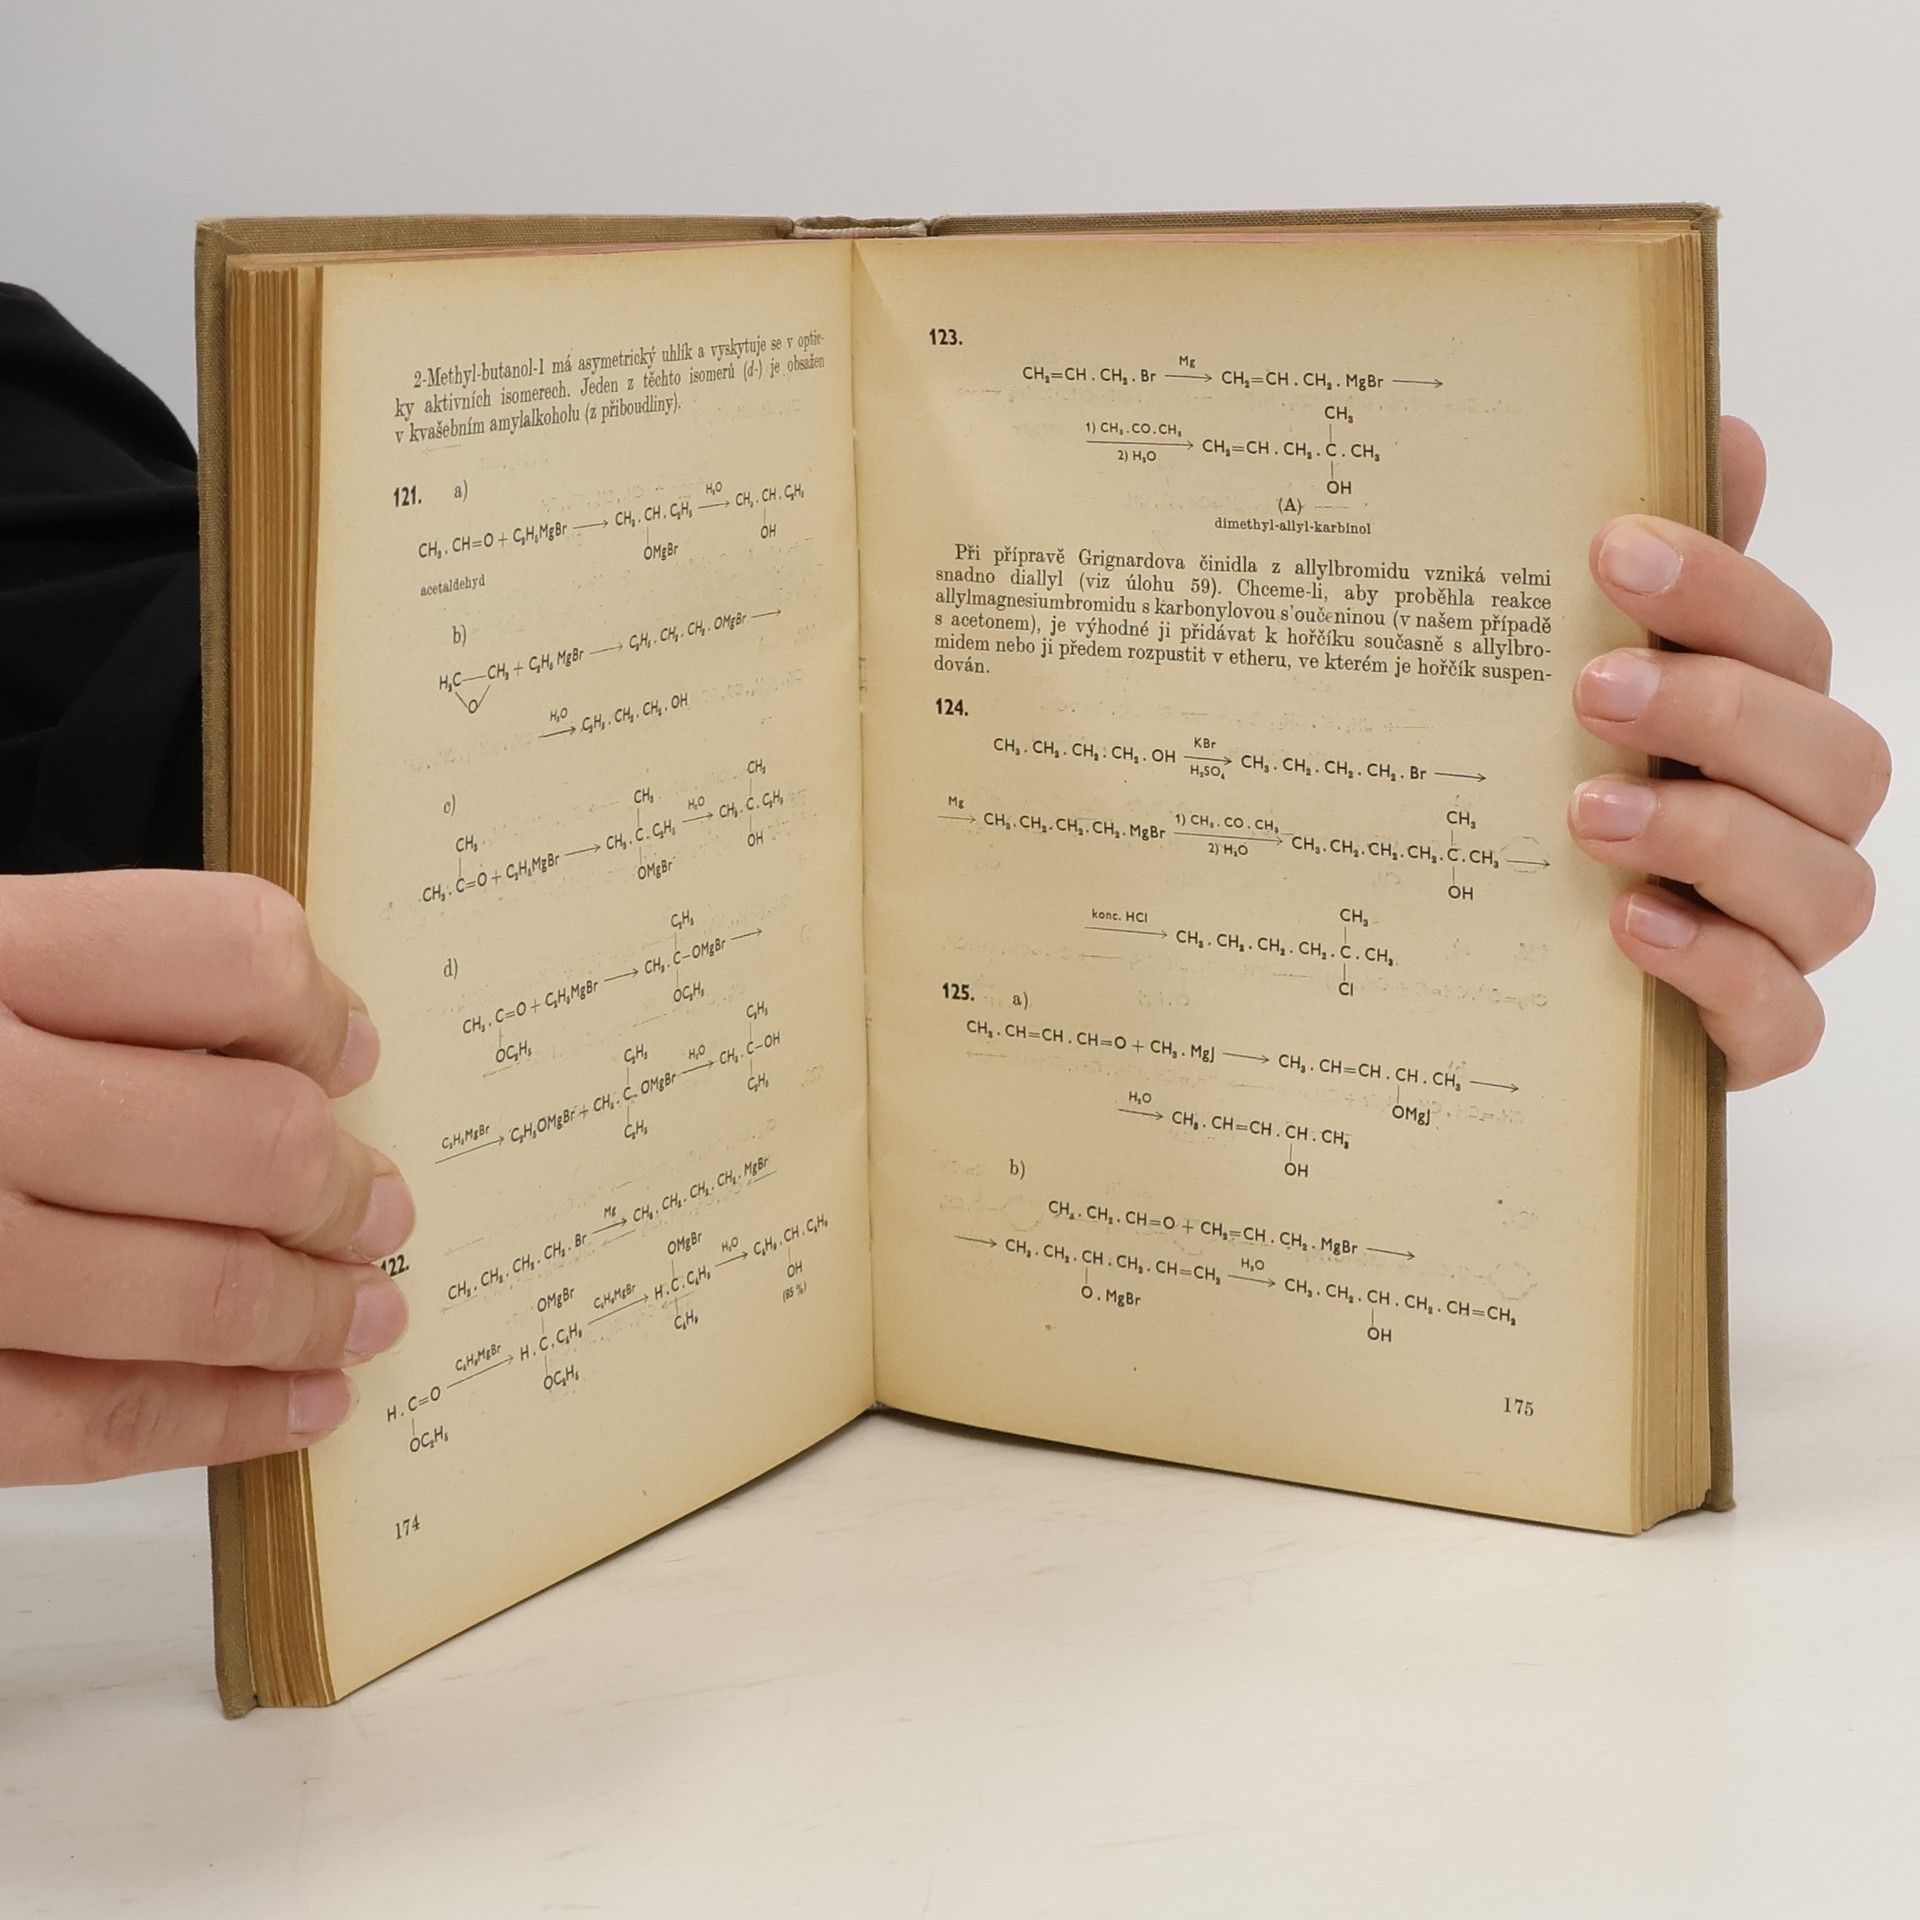 2-Methyl-butanol-1 má asymetrický uhlík a vyskytuje se v optic-
ky aktivních isomerech. Jeden z těchto isomerů (d-) je obsažen
v kvašebním amylalkoholu (z přiboudliny).
121. a)
CH₃.CH=O + C₂H₅MgBr ⟶ CH₃.CH.C₂H₅ ⟶ CH₃.CH.C₂H₅
H₂O
OMgBr
OH
acetaldehyd
b)
H₂C—CH₂ + C₂H₅MgBr ⟶ C₂H₅.CH₂.CH₂.OMgBr ⟶
O
H₂O
⟶ C₂H₅.CH₂.CH₂.OH
c)
CH₃ CH₃ CH₃
CH₃.C=O + C₂H₅MgBr ⟶ CH₃.C.C₂H₅ ⟶ CH₃.C.C₂H₅
H₂O
OMgBr OH
d)
C₂H₅
CH₃.C=O + C₂H₅MgBr ⟶ CH₃.C–OMgBr ⟶
OC₂H₅ OC₂H₅
C₂H₅ C₂H₅
C₂H₅MgBr
⟶ C₂H₅OMgBr + CH₃.C.OMgBr ⟶ CH₃.C–OH
H₂O
C₂H₅ C₂H₅
122.
CH₃.CH₂.CH₂.CH₂.Br ⟶ CH₃.CH₂.CH₂.CH₂.MgBr
Mg
OMgBr OMgBr
H.C=O ⟶ H.C.C₄H₉ ⟶ H.C.C₄H₉ ⟶ C₄H₉.CH.C₄H₉
C₄H₉MgBr C₄H₉MgBr H₂O
OC₂H₅ OC₂H₅ C₄H₉ OH
(85 %)
174
123.
Mg
CH₂=CH.CH₂.Br ⟶ CH₂=CH.CH₂.MgBr ⟶
CH₃
1) CH₃.CO.CH₃
⟶ CH₂=CH.CH₂.C.CH₃
2) H₂O
OH
(A)
dimethyl-allyl-karbinol
Při přípravě Grignardova činidla z allylbromidu vzniká velmi
snadno diallyl (viz úlohu 59). Chceme-li, aby proběhla reakce
allylmagnesiumbromidu s karbonylovou s'oučeninou (v našem případě
s acetonem), je výhodné ji přidávat k hořčíku současně s allylbro-
midem nebo ji předem rozpustit v etheru, ve kterém je hořčík suspen-
dován.
124.
KBr
CH₃.CH₂.CH₂.CH₂.OH ⟶ CH₃.CH₂.CH₂.CH₂.Br ⟶
H₂SO₄
CH₃
Mg 1) CH₃.CO.CH₃
⟶ CH₃.CH₂.CH₂.CH₂.MgBr ⟶ CH₃.CH₂.CH₂.CH₂.C.CH₃ ⟶
2) H₂O
OH
CH₃
konc. HCl
⟶ CH₃.CH₂.CH₂.CH₂.C.CH₃
Cl
125. a)
CH₃.CH=CH.CH=O + CH₃.MgJ ⟶ CH₃.CH=CH.CH.CH₃ ⟶
OMgJ
H₂O
⟶ CH₃.CH=CH.CH.CH₃
OH
b)
CH₃.CH₂.CH=O + CH₂=CH.CH₂.MgBr ⟶
⟶ CH₃.CH₂.CH.CH₂.CH=CH₂ ⟶ CH₃.CH₂.CH.CH₂.CH=CH₂
H₂O
O.MgBr OH
175